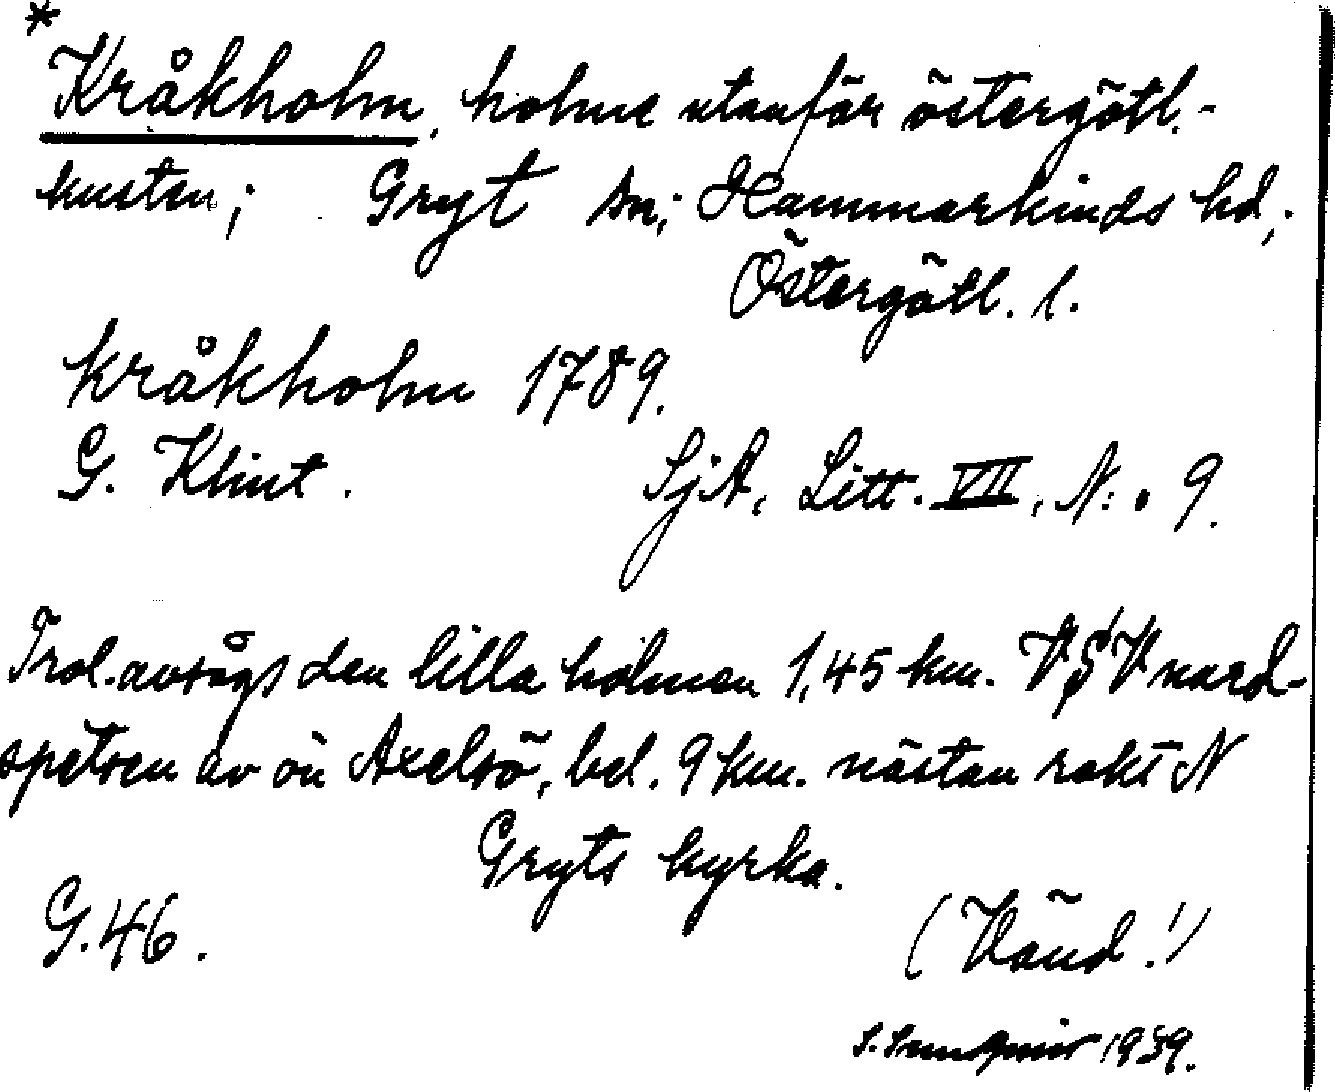 *
Kråkholm, holme utanför östergötl.-
kusten; Gryt sn; Hammarkinds hd,
Östergötl. l.
kråkholm 1789.
G. Klint. SjA, Litt. VII, N:o 9.
Trol. avsågs den lilla holmen 1,45 km. VSV nord-
spetsen av ön Axelsö, bel. 9 km. nästan rakt N
Gryts kyrka.
G.46. (Vänd!)
1939.